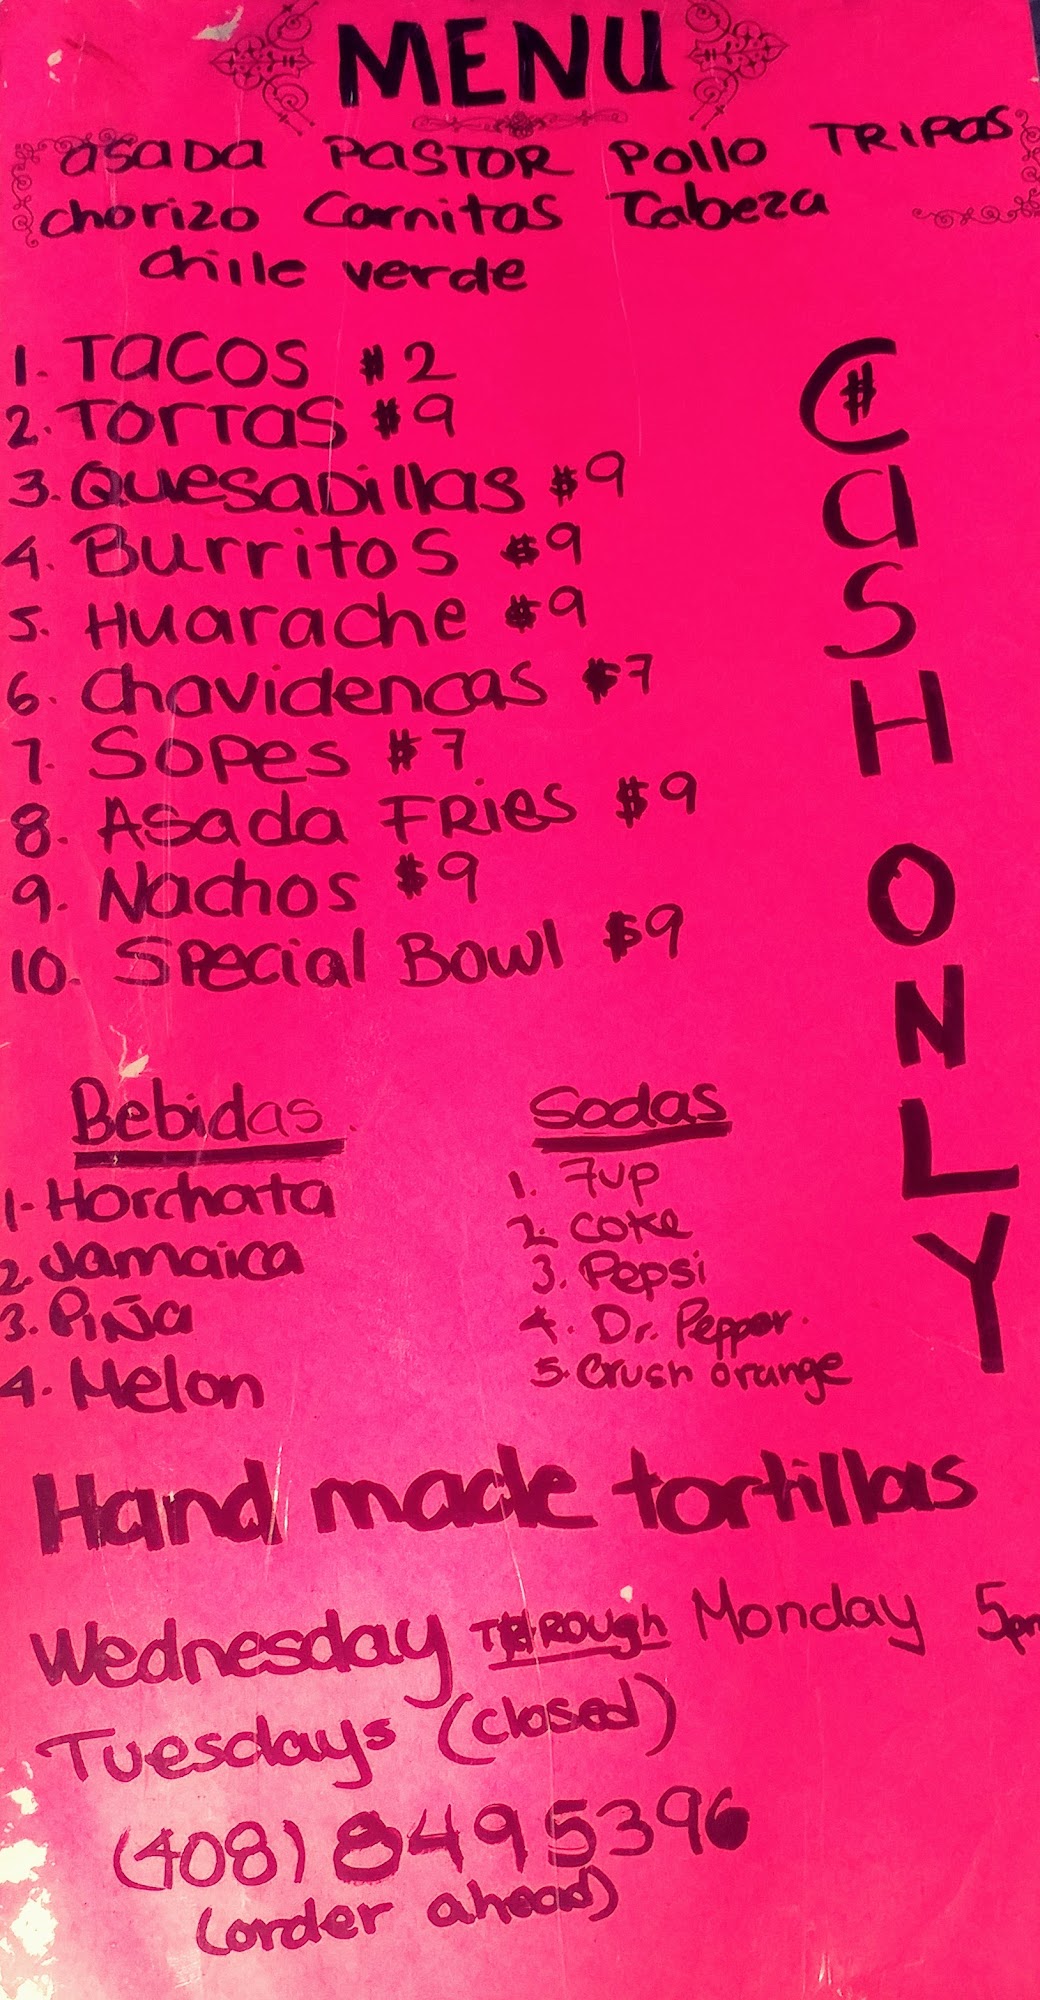 MENU
asada PASTOR Pollo TRIPAS
chorizo Carnitas Cabeza
chile verde
1. TACOS $2
2. TORTAS $9
3. Quesadillas $9
4. Burritos $9
5. Huarache $9
6. Chavidencas $7
7. Sopes $7
8. Asada FRies $9
9. Nachos $9
10. Special Bowl $9
CASH ONLY
Bebidas
1- Horchata
2. Jamaica
3. Piña
4. Melon
Sodas
1. 7up
2. Coke
3. Pepsi
4. Dr. Pepper.
5. Crush orange
Hand made tortillas
Wednesday THROUgh Monday 5pm
Tuesdays (closed)
(408) 849 5396
(order ahead)